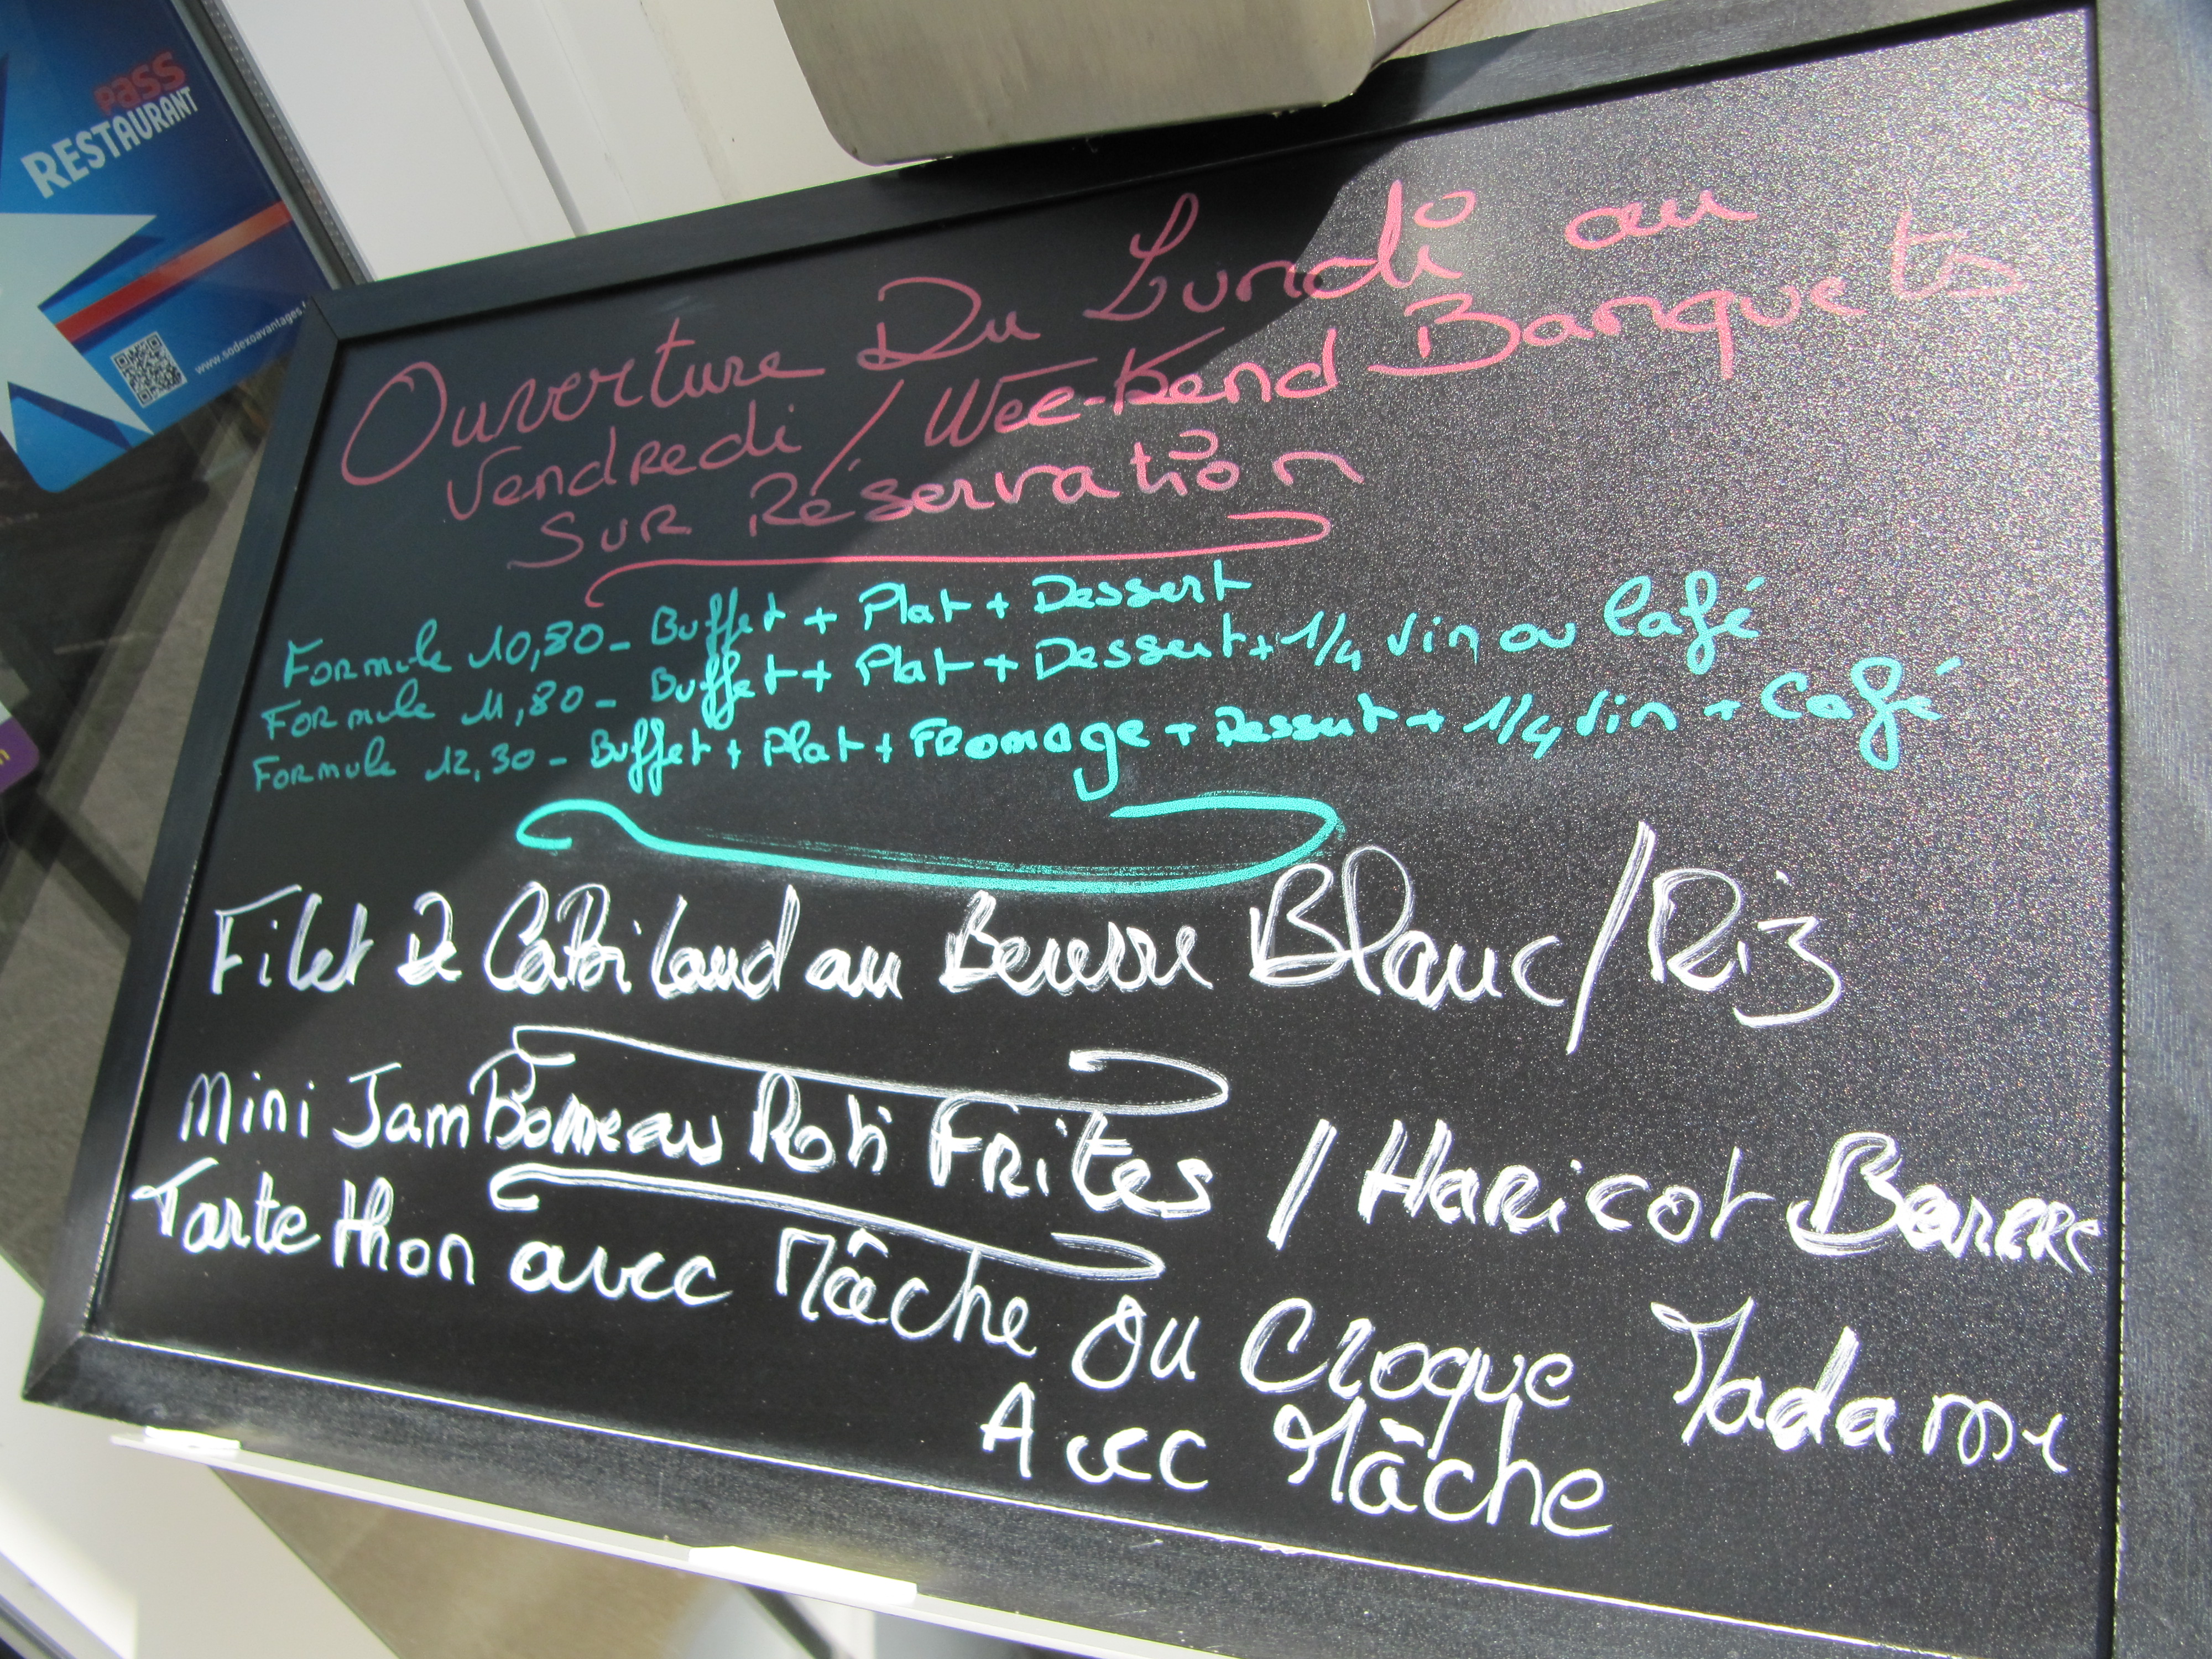 pass
RESTAURANT
www.sodexoavantages.
Ouverture Du Lundi au
Vendredi / Wee-Kend Banquets
SUR Réservation
Formule 10,80 - Buffet + Plat + Dessert
Formule 11,80 - Buffet + Plat + Dessert + 1/4 vin ou Café
Formule 12,30 - Buffet + Plat + Fromage + Dessert + 1/4 vin + Café
Filet De Cabillaud au Beurre Blanc / Riz
Mini Jambonneau Roti Frites / Haricot Beurre
Tarte thon avec Mâche ou Croque Madame
Avec Mâche